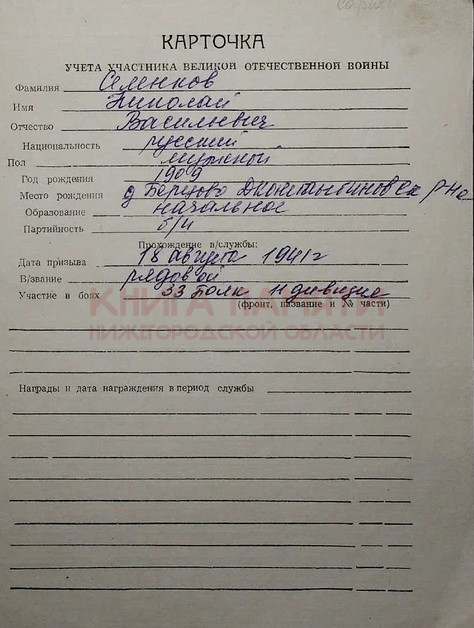 КАРТОЧКА
УЧЕТА УЧАСТНИКА ВЕЛИКОЙ ОТЕЧЕСТВЕННОЙ ВОЙНЫ
Фамилия Семенков
Имя Николай
Отчество Васильевич
Национальность русский
Пол мужской
Год рождения 1909
Место рождения д р-на
Образование начальное
Партийность б/п
Прохождение в/службы:
Дата призыва 18 августа 1941г
В/звание рядовой
Участие в боях 33 полк 11 дивизия
(фронт, название и № части)
КНИГА ПАМЯТИ
НИЖЕГОРОДСКОЙ ОБЛАСТИ
Награды и дата награждения в период службы